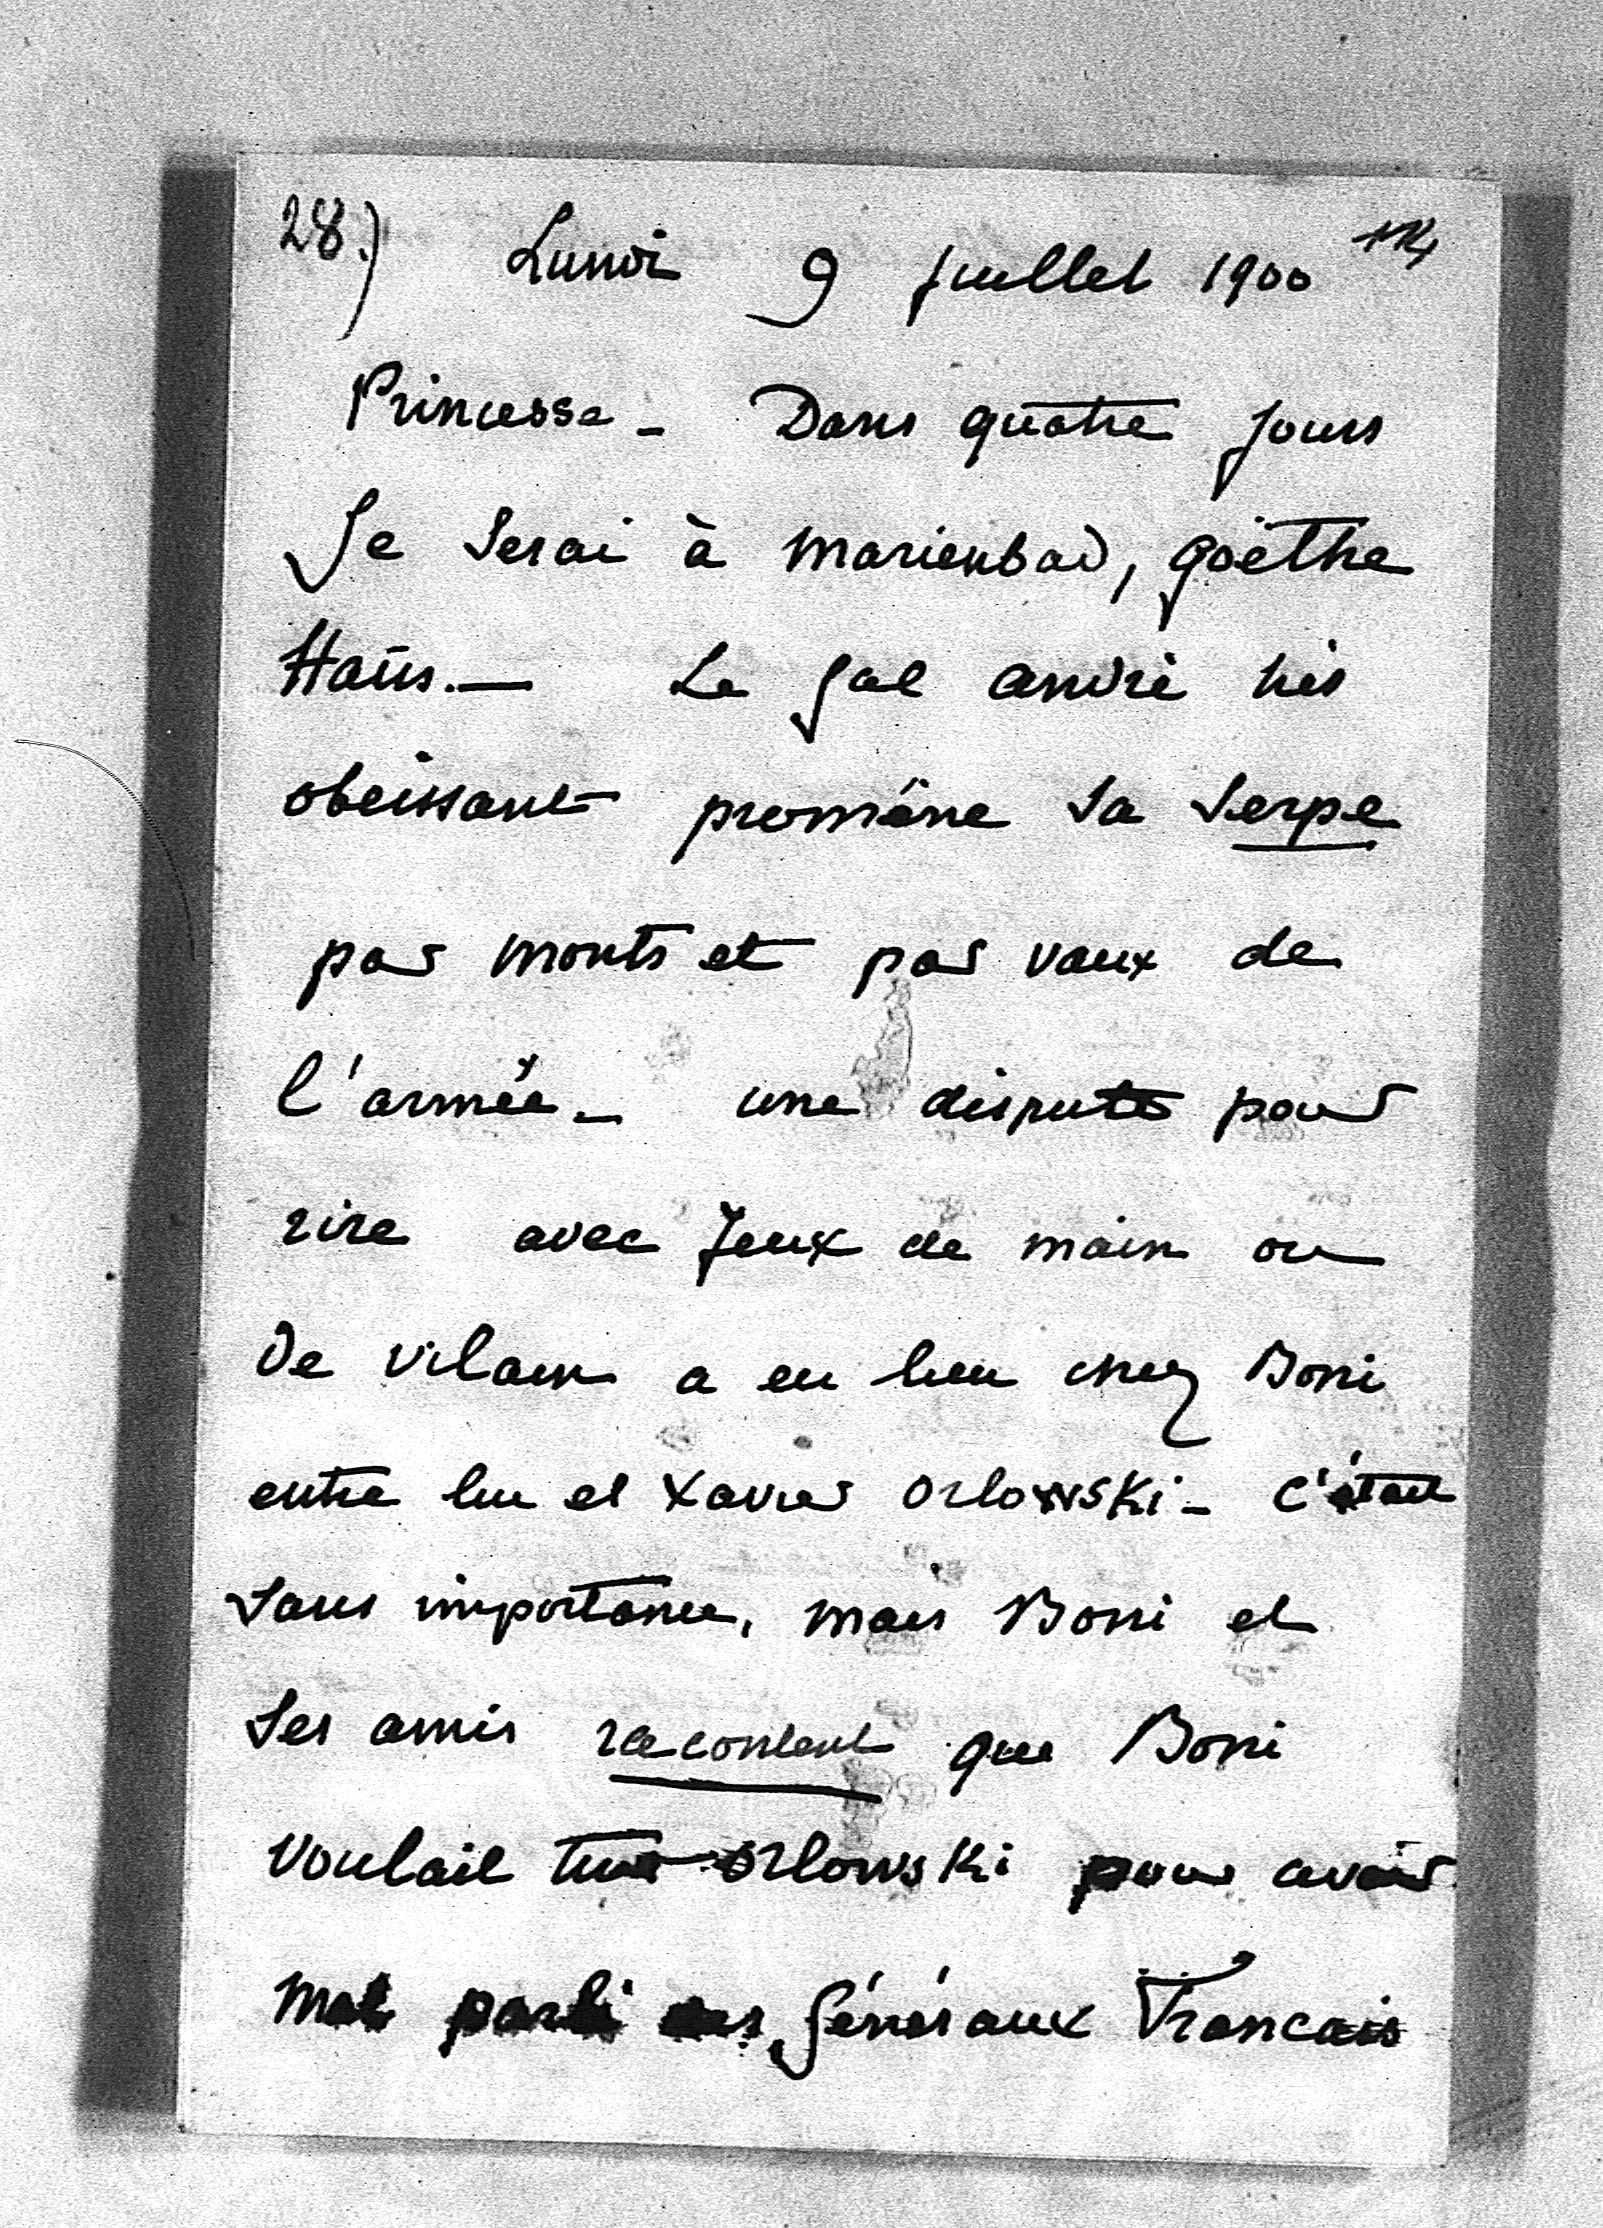 28.) Lundi 9 Juillet 1900
Princesse - Dans quatre Jours
Je serai à Marienbad, Goëthe
Haüs. — Le Gal André très
obeissant promène sa serpe
par monts et par vaux de
l'armée - une dispute pour
rire avec Jeux de main ou
de vilain a eu lieu chez Boni
entre lui et Xavier Orlowski - C'était
sans importance, mais Boni et
ses amis racontent que Boni
voulait tuer Orlowski pour avoir
mal parlé des Généraux Francais